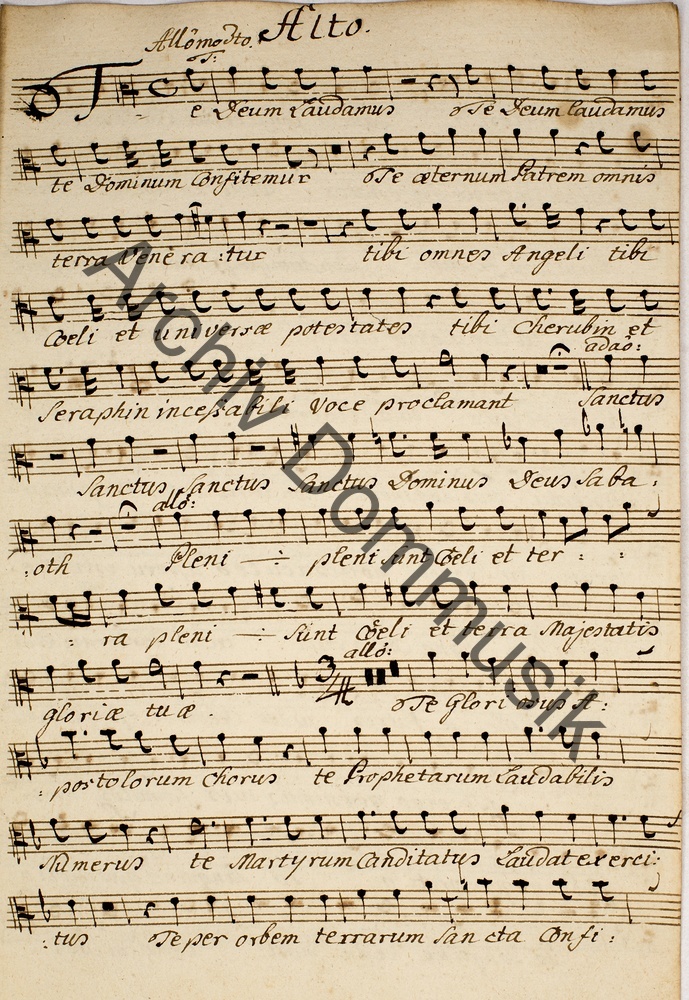 Alto.
Allô modto. T:
Te Deum Laudamus Te Deum laudamus
te Dominum Confitemur Te æternum Patrem omnis
terra Venera:tur tibi omnes Angeli tibi
Cœli et universæ potestates tibi Cherubin et
adaô:
Seraphin incessabili Voce proclamant Sanctus
Sanctus Sanctus Sanctus Dominus Deus Saba:
allô:
:oth Pleni —:— pleni sunt Cœli et ter : :
: ra pleni —:— Sunt Cœli et terra Majestatis
allô:
gloriæ tuæ. 3/4 4 Te Gloriosus A:
:postolorum Chorus te Prophetarum Laudabilis
Numerus te Martyrum Canditatus Laudat exerci:
:tus Te per orbem terrarum San cta Confi:
Archiv Dommusik